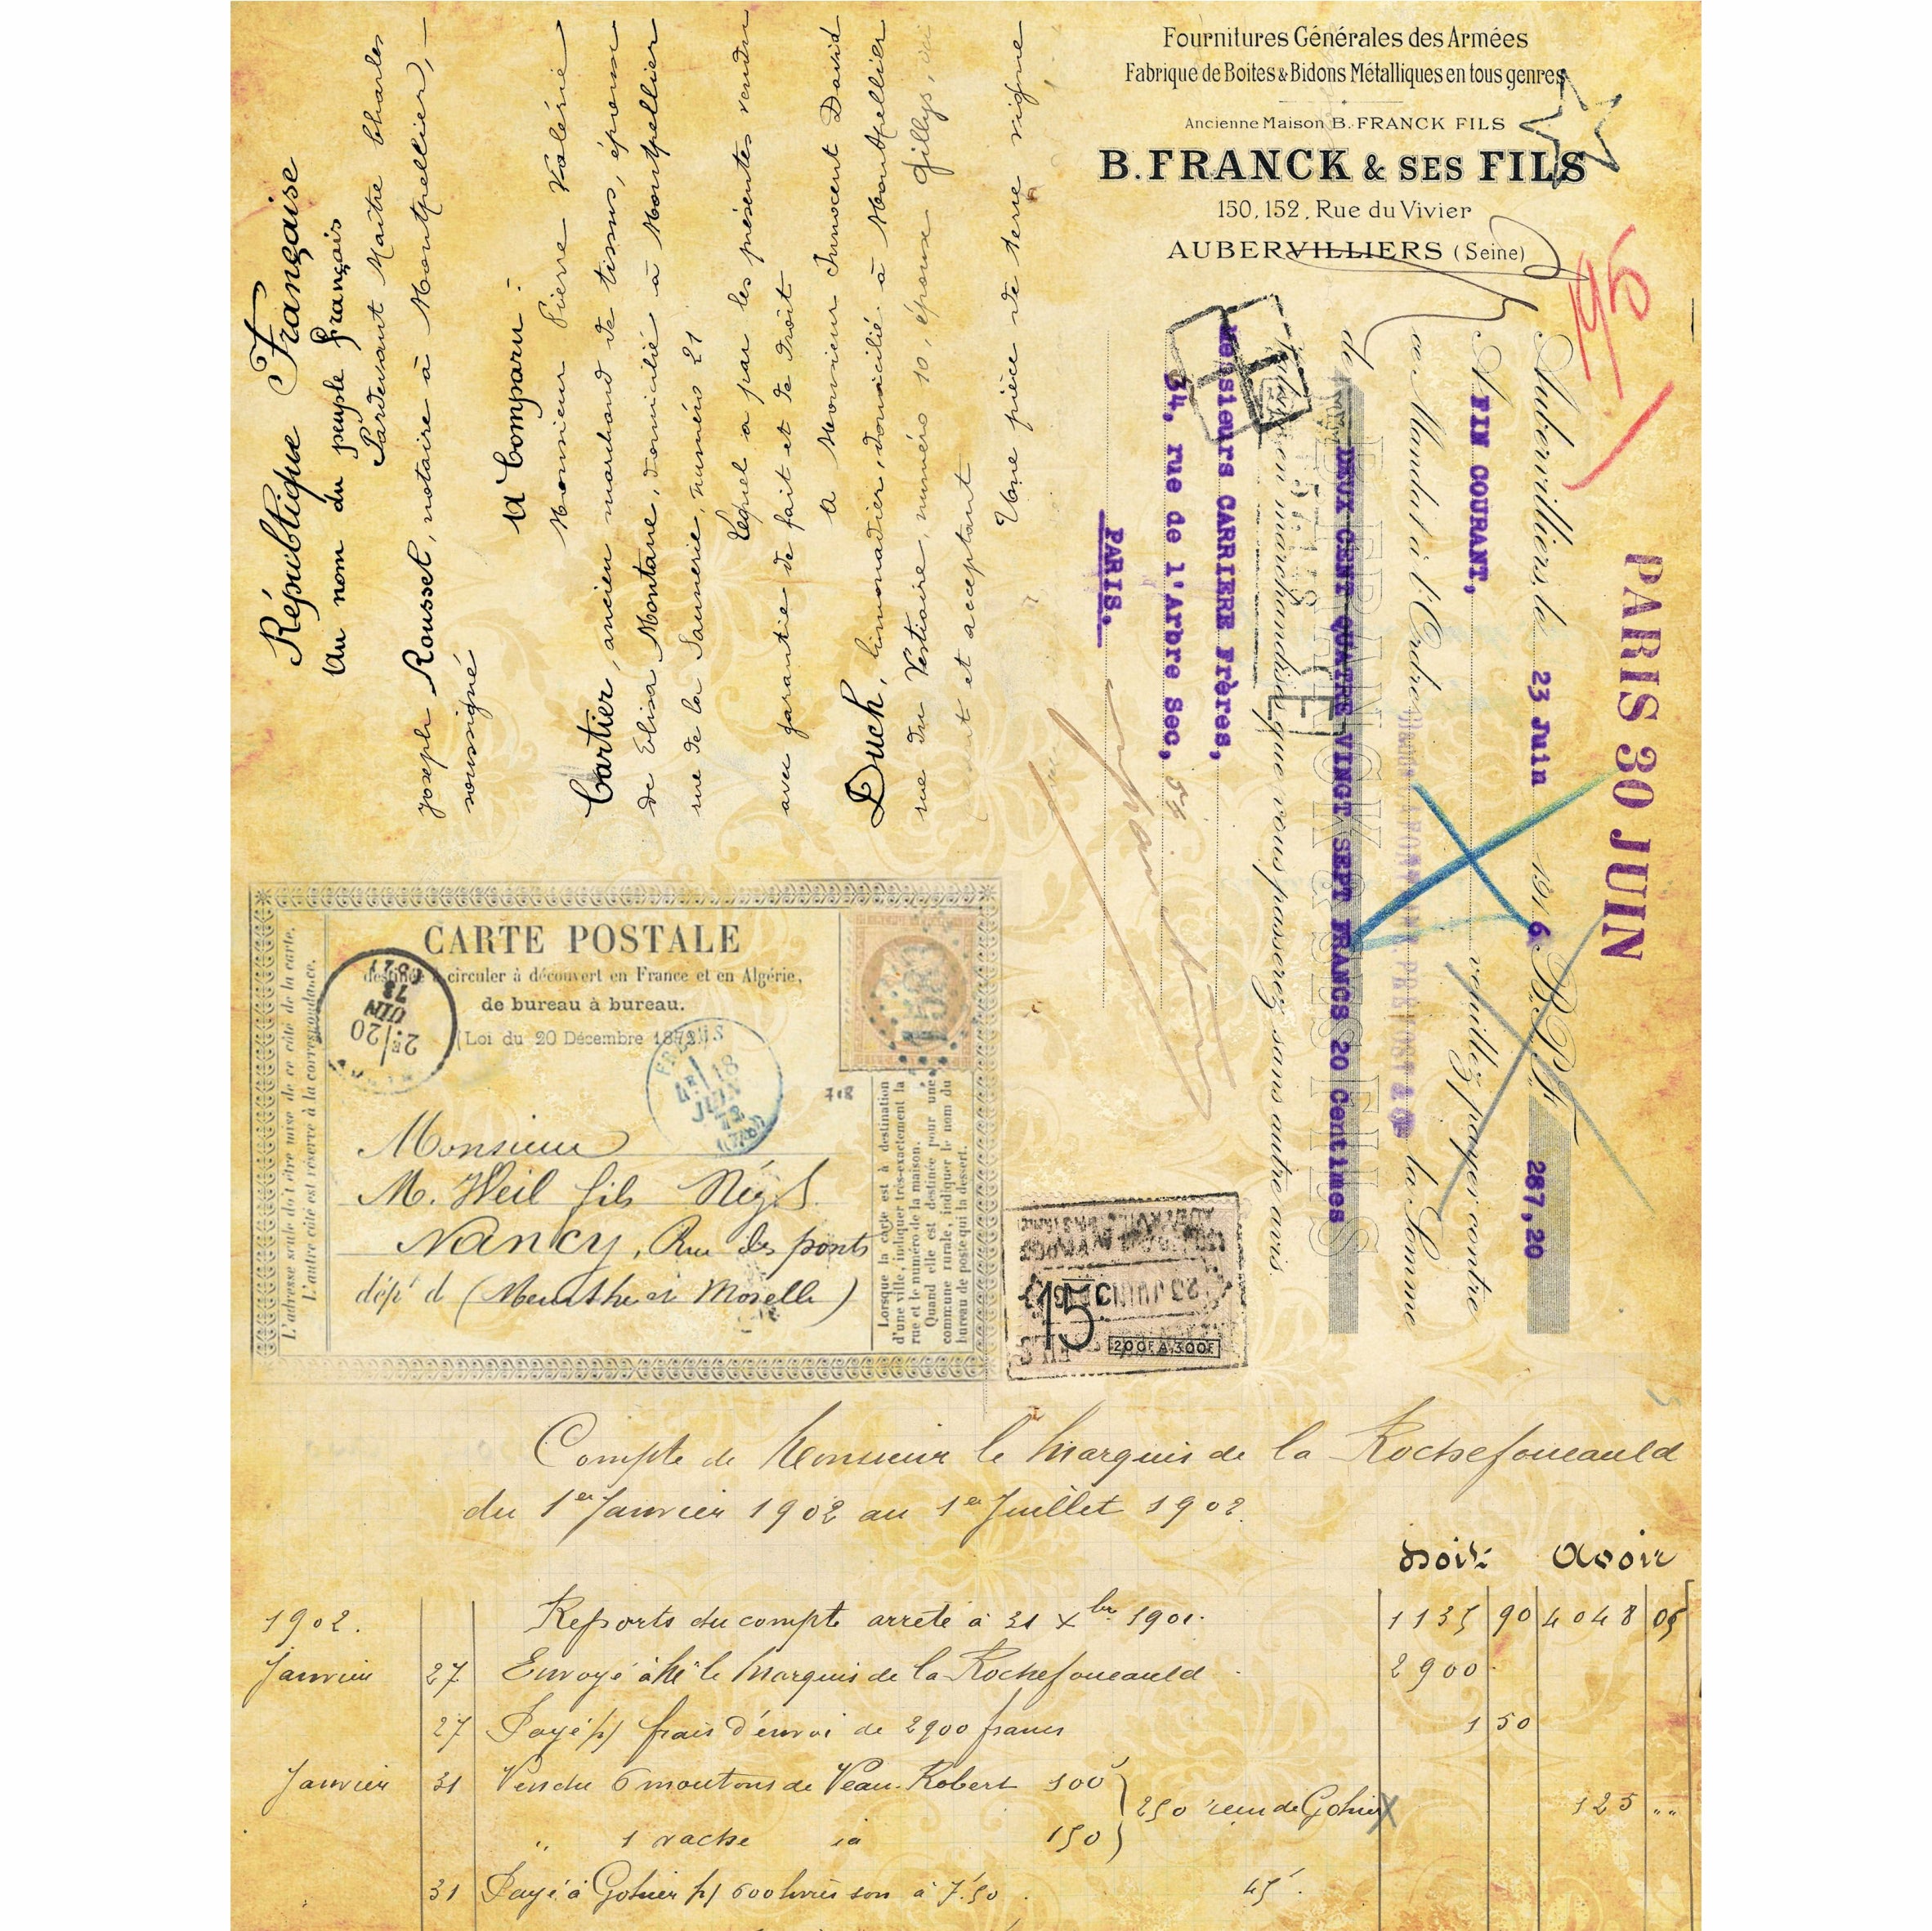 République Française
Au nom du peuple français
Pardevant Maître Charles
Joseph Rousset, notaire à Montpellier,
soussigné
A Comparu :
Monsieur Pierre Valérie
Cartier, ancien marchand de tissus, époux
de Elisa Montane, domicilié à Montpellier
rue de la Saunerie, numéro 21
Lequel a par les présentes vendu
avec garantie de fait et de droit
A Monsieur Innocent David
Duch, limonadier, domicilié à Montpellier
rue du Vestiaire, numéro 10, époux Gillys, ici
présent et acceptant
Une pièce de terre vigne
Fournitures Générales des Armées
Fabrique de Boites & Bidons Métalliques en tous genres
Ancienne Maison B. FRANCK FILS
B. FRANCK & SES FILS
150, 152, Rue du Vivier
AUBERVILLIERS (Seine)
PARIS 30 JUIN
Aubervilliers, le 23 Juin 1916 B.P.F. 287,20
A FIN COURANT, veuillez payer contre
ce Mandat à l'Ordre la Somme
de DEUX CENT QUATRE VINGT SEPT FRANCS 20 Centimes
B. FRANCK & SES FILS
valeur en marchandises que vous passerez sans autre avis.
Messieurs CARRIERE Frères,
34, rue de l'Arbre Sec,
PARIS.
CARTE POSTALE
destinée à circuler à découvert en France et en Algérie,
de bureau à bureau.
Loi du 20 Décembre 1872
L'adresse seule doit être mise de ce côté de la carte.
L'autre côté est réservé à la correspondance.
2E 20
JUIN
73
FREJUS
18
JUIN
73
718
Monsieur
M. Weil fils Nég.t
Nancy, Rue des ponts
dép.t d (Meurthe et Moselle)
Lorsque la carte est à destination
d'une ville, indiquer très-exactement la
rue et le numéro de la maison.
Quand elle est destinée pour une
commune rurale, indiquer le nom du
bureau de poste qui la dessert.
23 JUIN
15 C
200F A 300F
Compte de Monsieur le Marquis de la Rochefoucauld
du 1er Janvier 1902 au 1er Juillet 1902.
Doit: Avoir
1902. Reports du compte arrêté à 31 Xbre 1901. 1135 90 4048 05
Janvier 27 Envoyé à Mr le Marquis de la Rochefoucauld 2900
27 Payé p/ frais d'envoi de 2900 francs 1 50
Janvier 31 Vendu 6 moutons de Veau-Robert 100
250 reçu de Gohier 125 " "
" 1 vache id 150
31 Payé à Gohier p/ 600 livres son à 7.50 45